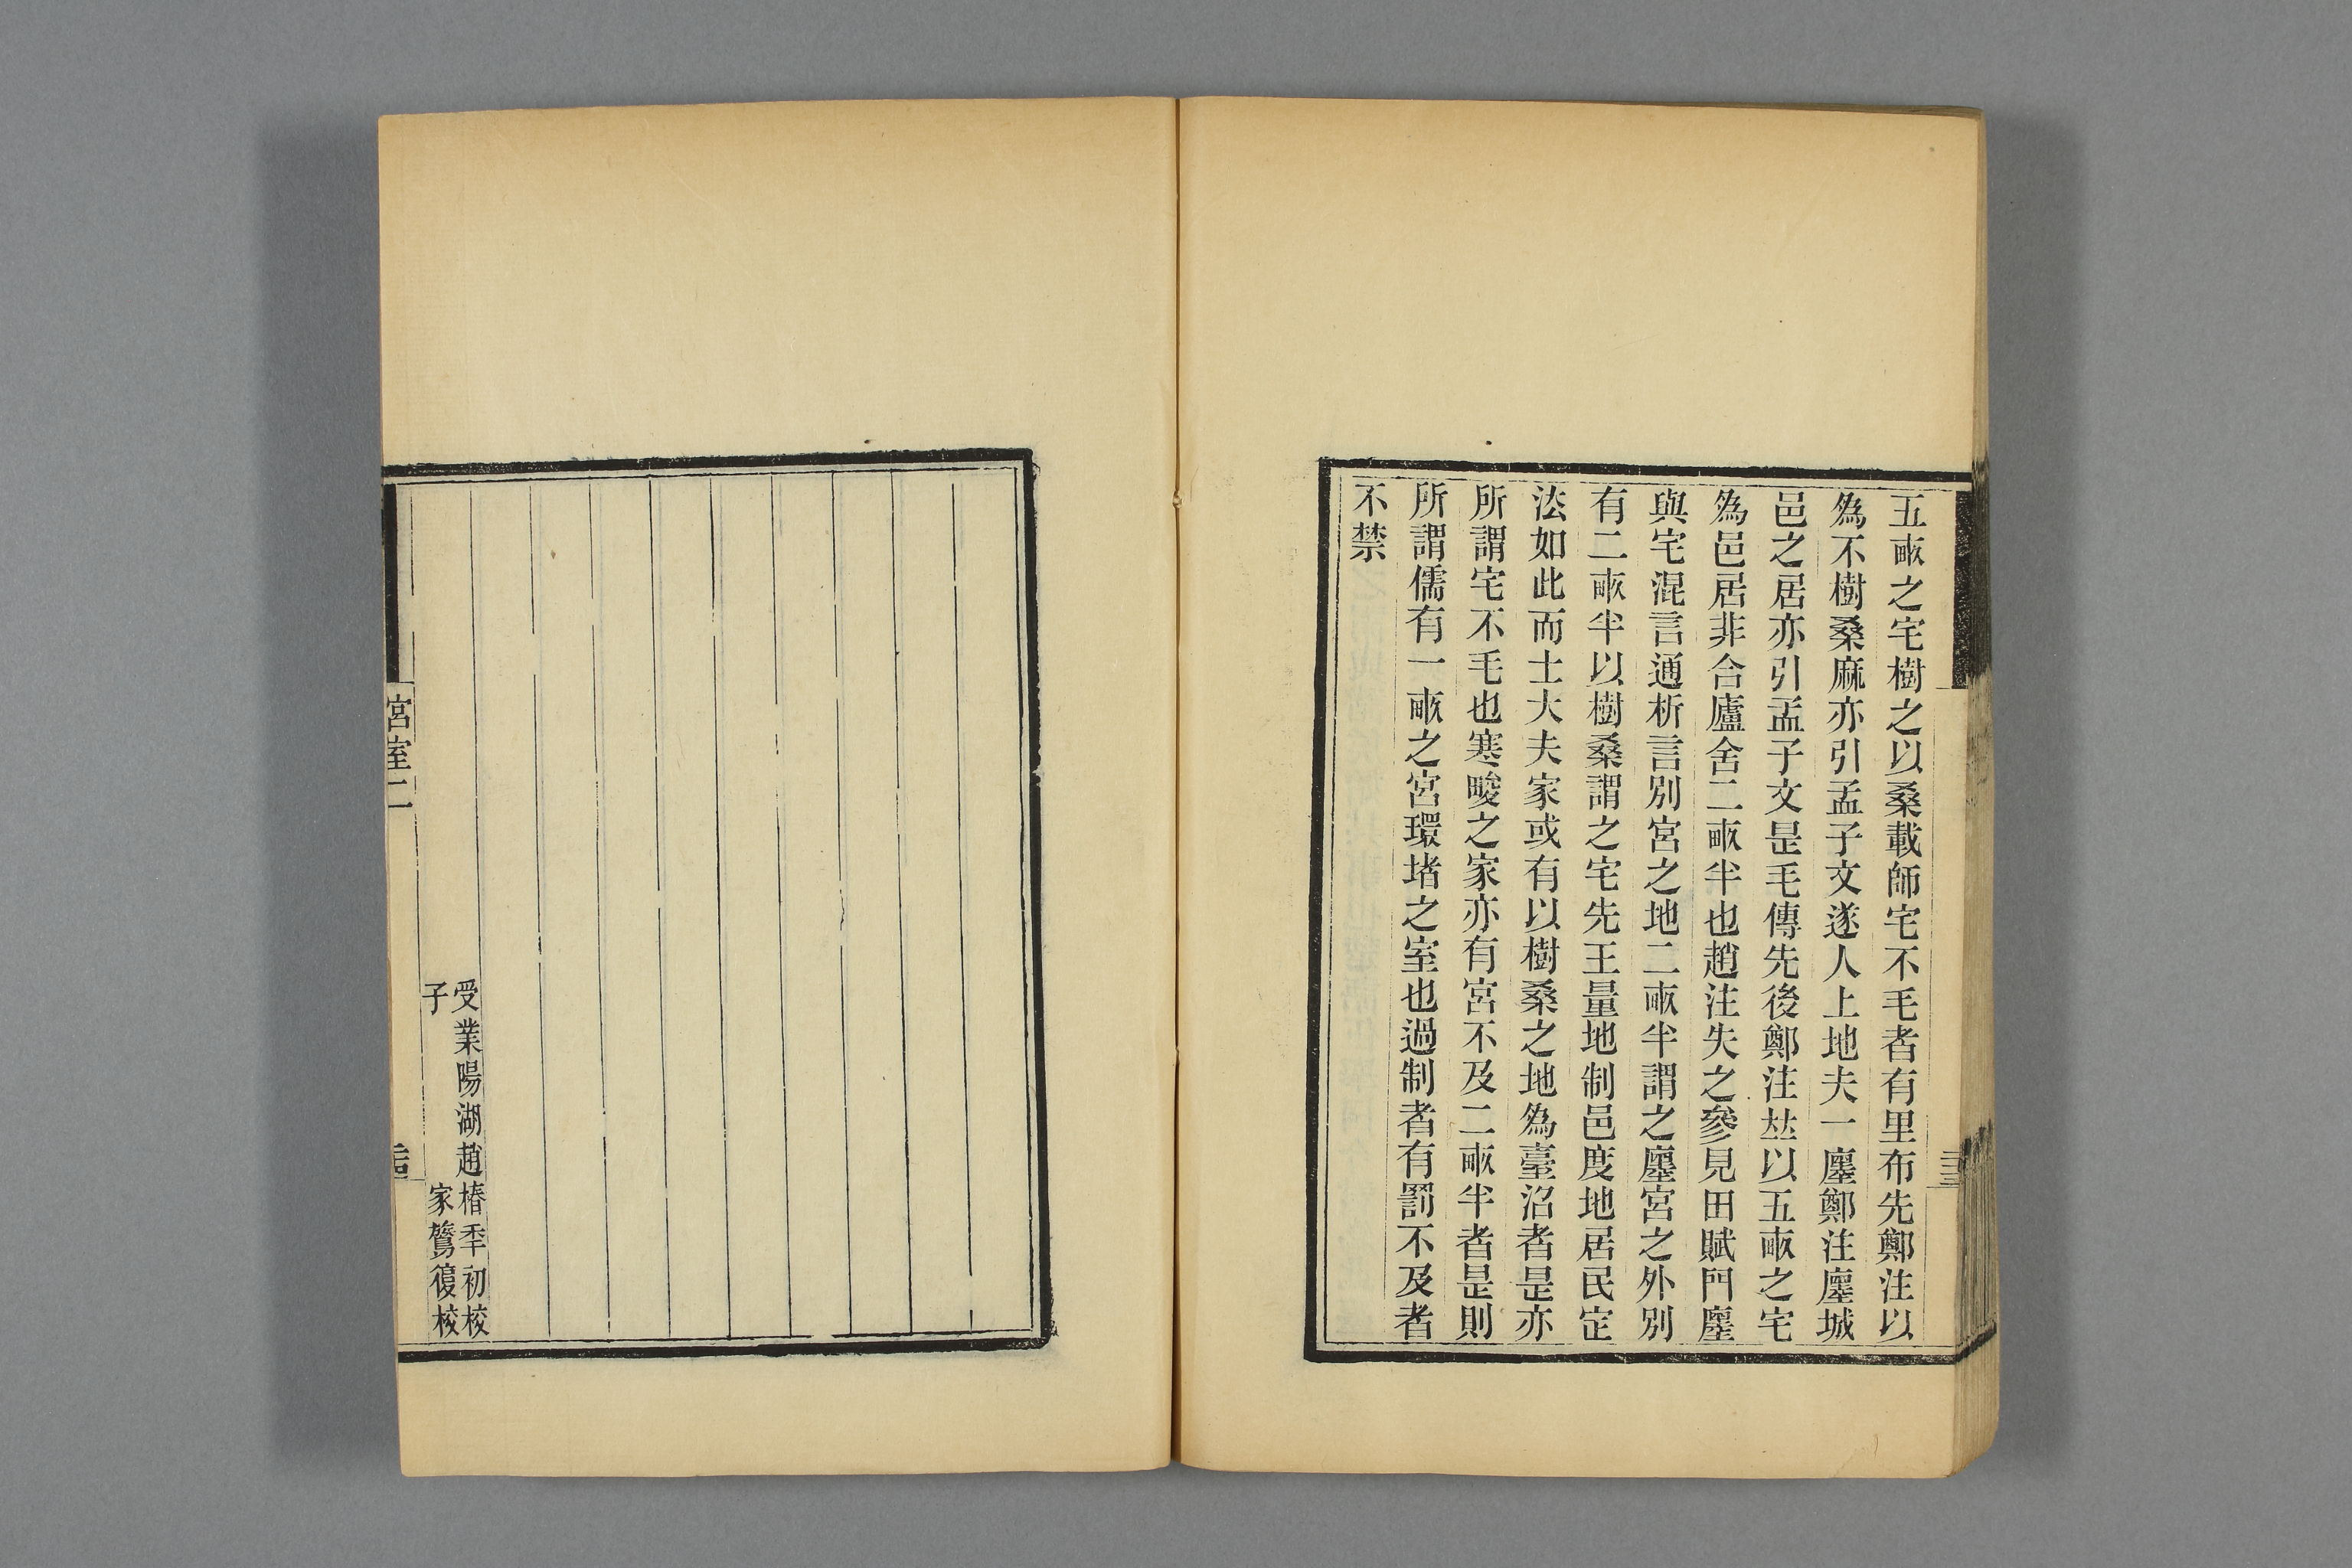 五畮之宅樹之以桑載師宅不毛者有里布先鄭注以
爲不樹桑麻亦引孟子文遂人上地夫一廛鄭注廛城
邑之居亦引孟子文是毛傳先後鄭注竝以五畮之宅
爲邑居非合廬舍二畮半也趙注失之參見田賦門廛
與宅混言通析言別宮之地二畮半謂之廛宮之外別
有二畮半以樹桑謂之宅先王量地制邑度地居民定
法如此而士大夫家或有以樹桑之地爲臺沼者是亦
所謂宅不毛也寒畯之家亦有宮不及二畮半者是則
所謂儒有一畮之宮環堵之室也過制者有罰不及者
不禁
受業陽湖趙椿秊初校
子家鷟復校
宮室二